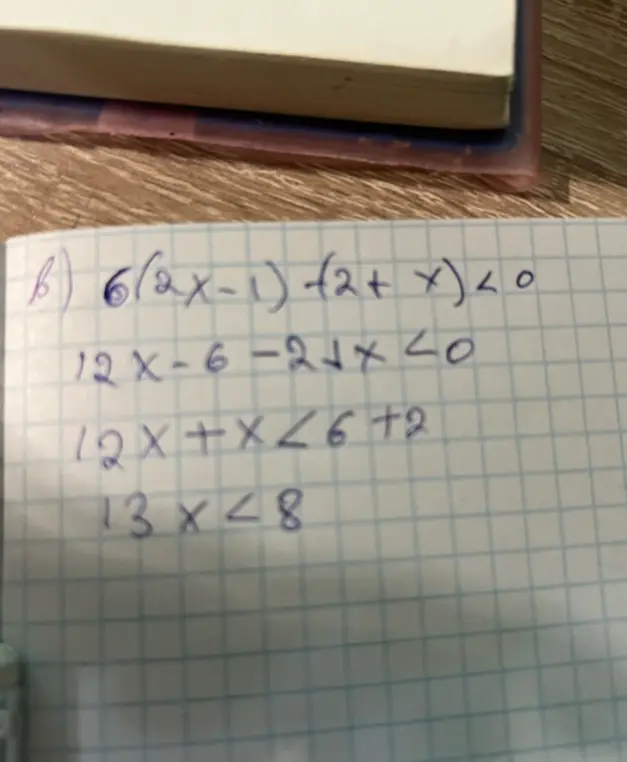 в) 6(2x-1)-(2+x)<0
12x-6-2+x<0
12x+x<6+2
13x<8